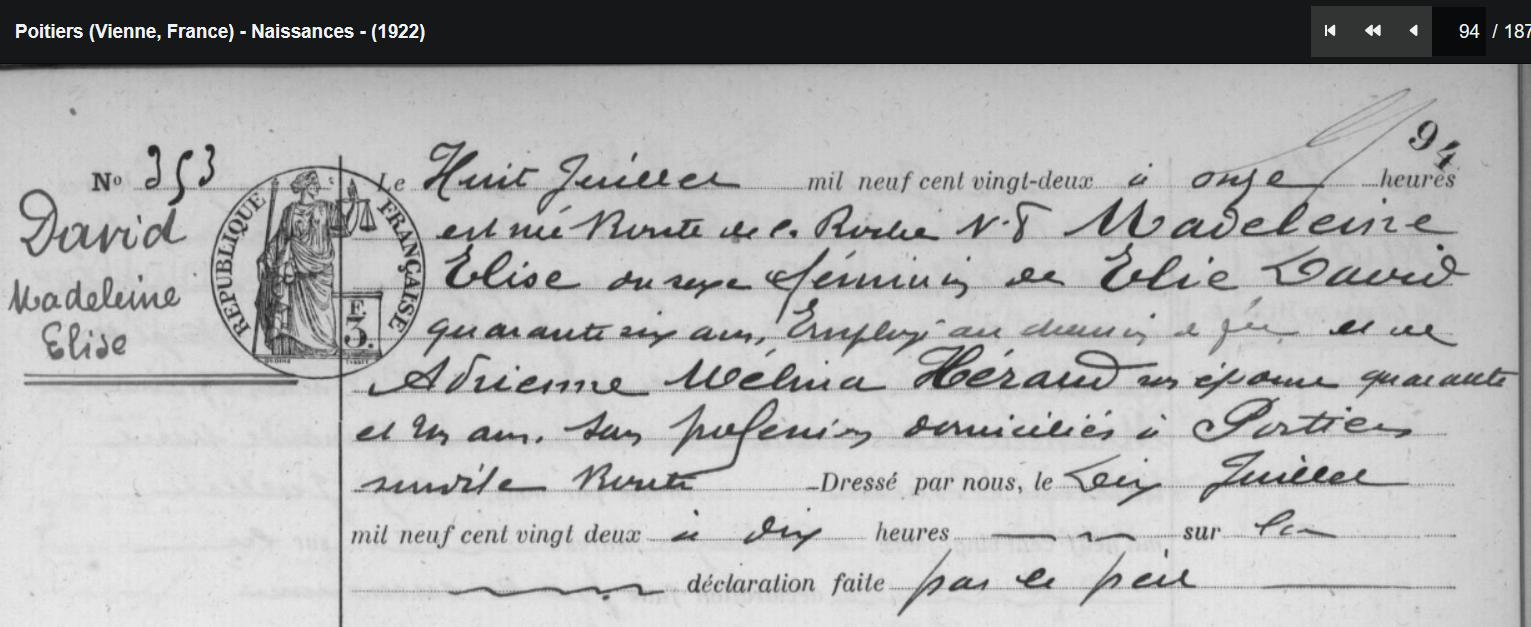 Poitiers (Vienne, France) - Naissances - (1922)
94 / 187
94
No 353
David
Madeleine
Elise
RÉPUBLIQUE FRANÇAISE
F.
3.
Le Huit Juillet mil neuf cent vingt-deux à onze heures
est née Route de la Roche N. 8 Madeleine
Elise du sexe féminin de Elie David
quarante six ans, Employé au chemin de fer et de
Adrienne Mélina Héraud son épouse quarante
et un ans, sans profession domiciliés à Poitiers
susdite Route Dressé par nous, le Dix Juillet
mil neuf cent vingt deux à dix heures sur la
déclaration faite par le père